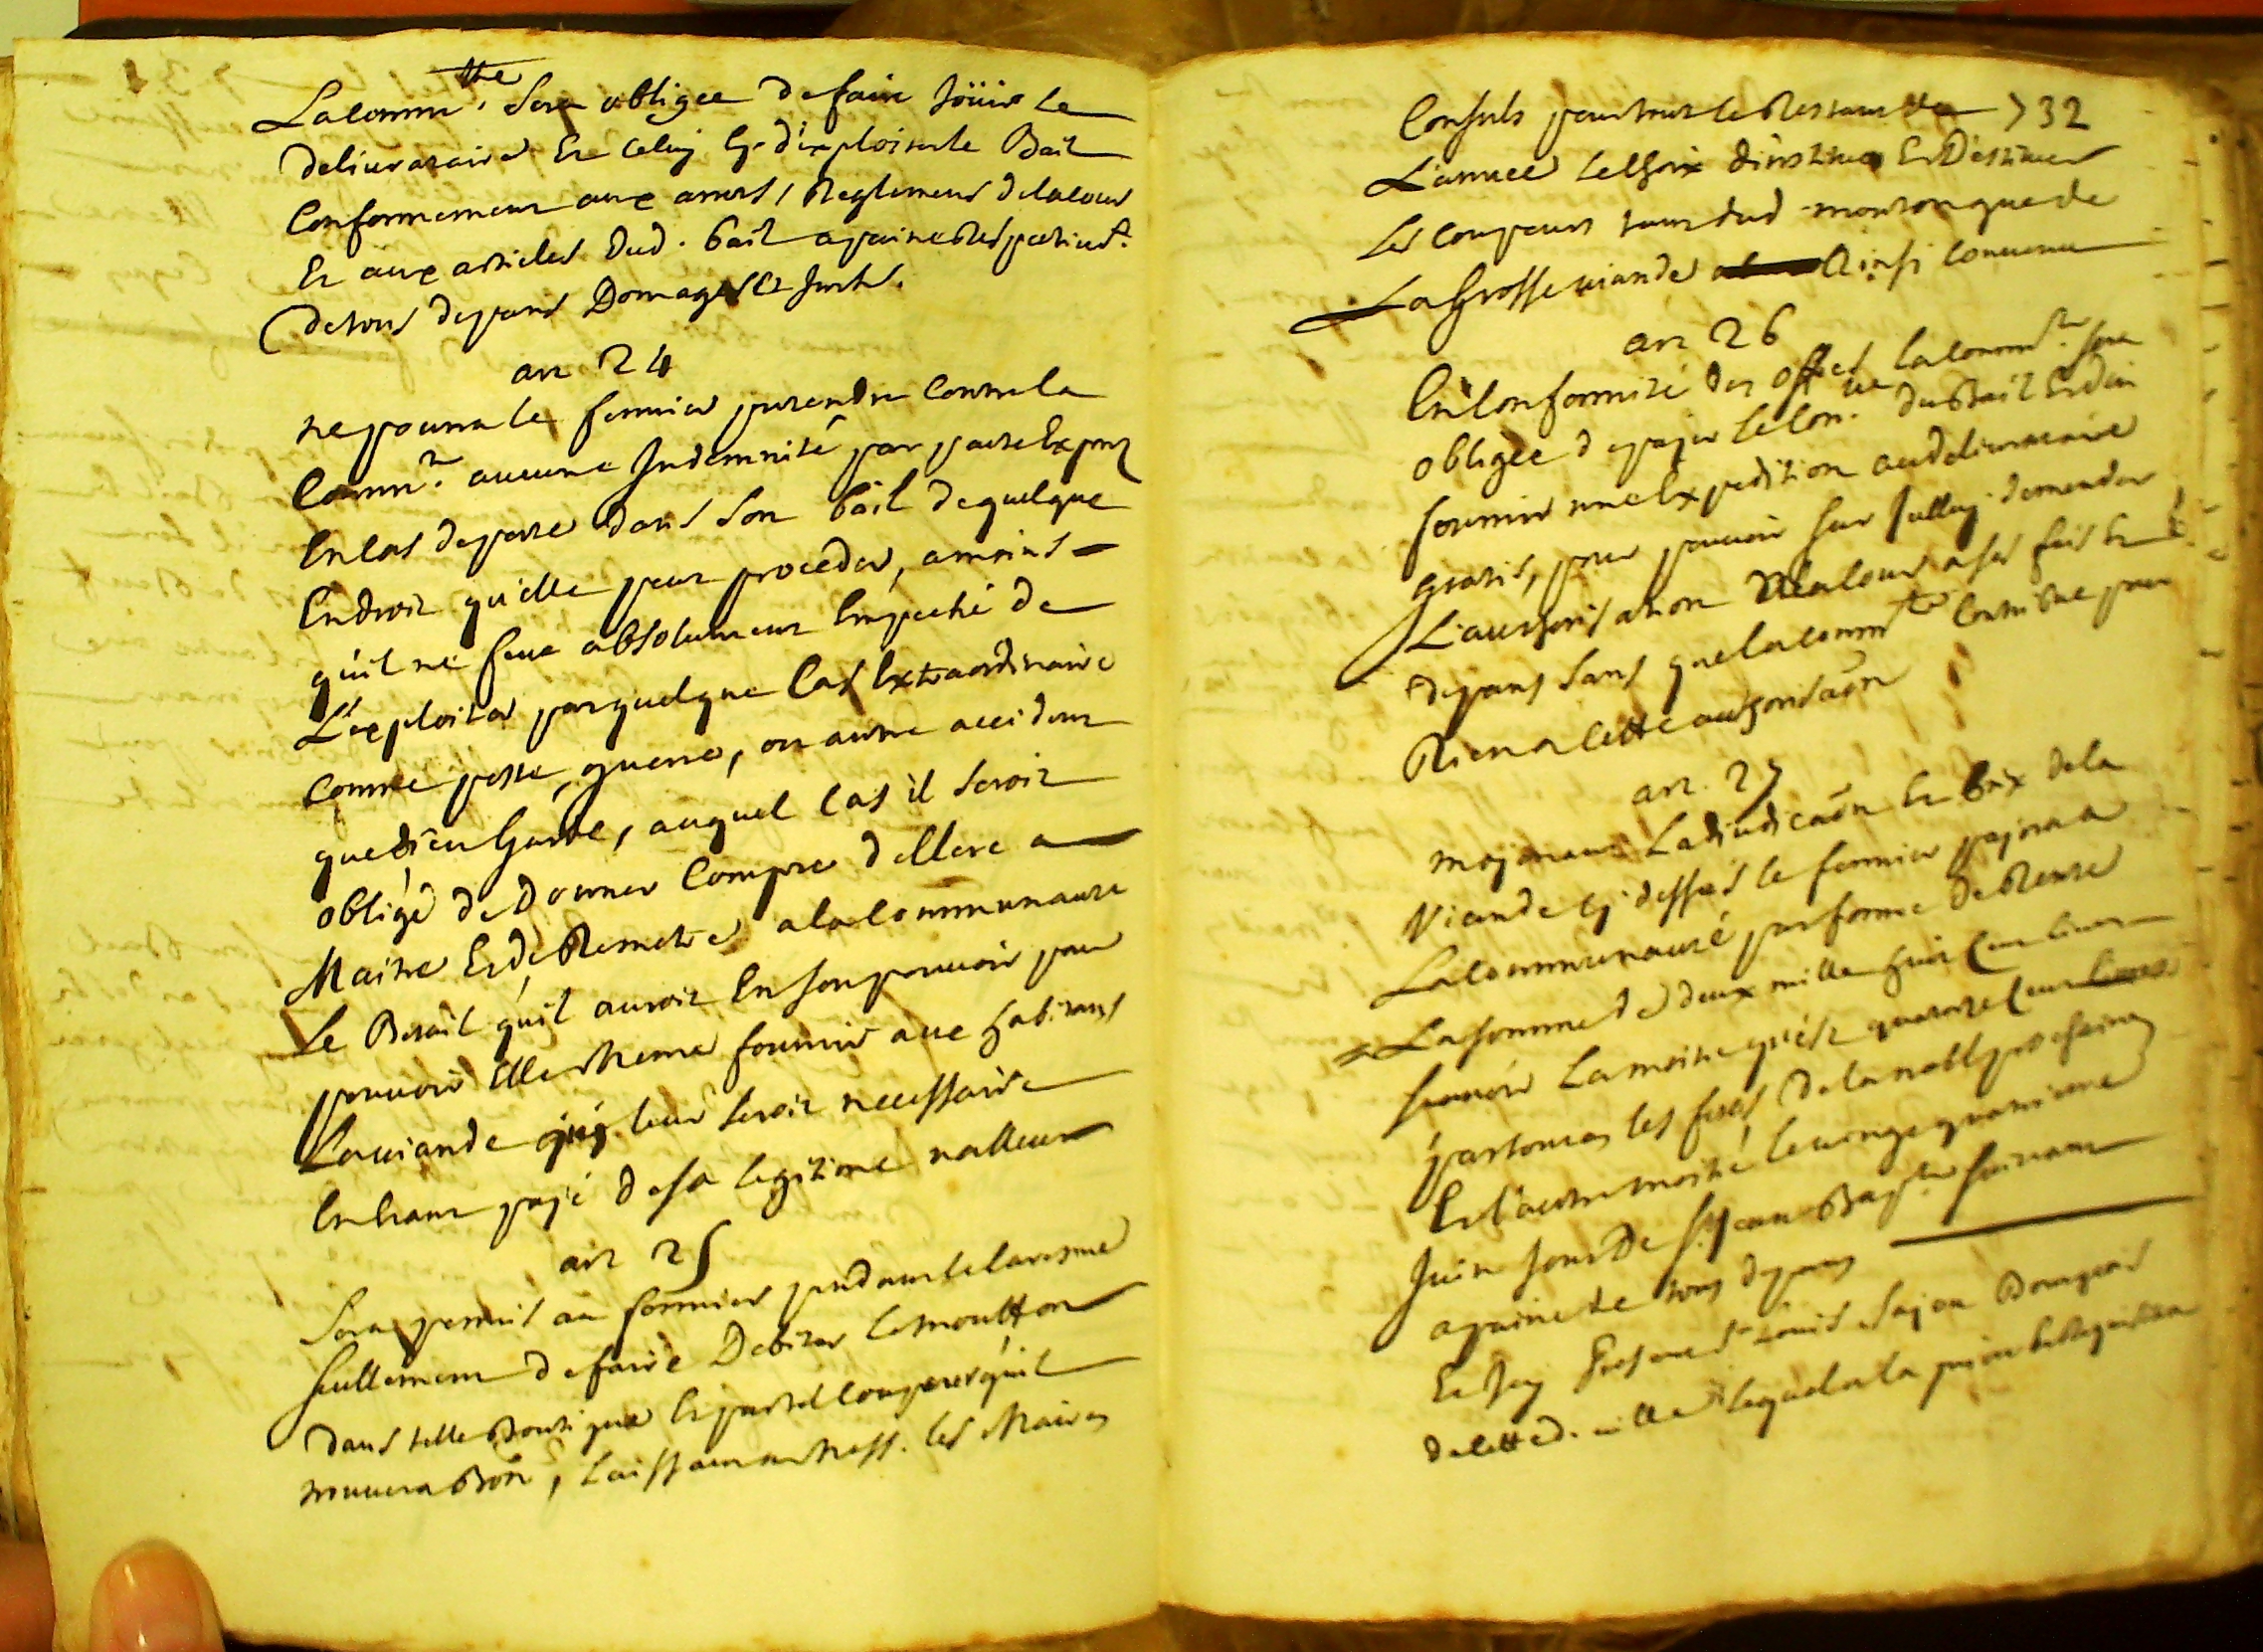 La comm.^the sera obligée de faire jöuir le
delivrataire Et celuy cy d'exploiter le Bail
Conformement aux arrets, Reglemens de la cour
Et aux articles dud. bail a peine respectiv.t
de tous depans Domages Et Jnts.
art 24
ne pourra le fermier pretendre contre la
Comm.té aucune Jndemnité par pacte Exprez
En cas de perte dans son bail de quelque
Endroit qu'elle peut proceder, a moins
qu'il ne feut absolument Empeché de
L'exploiter par quelque Cas Extraordinaire
comme peste, guerre, ou autre accident
que dieu Garde, auquel Cas il seroit
obligé de Donner Compte de Clerc a
Maitre Et de Remetre a la Communauté
Le Betail qu'il auroit En son pouvoir pour
pouvoir Elle meme fournir aux habitans
La viande quy leur seroit necessaire
En Etant payé de sa legitime valleur
art 25
Sera permis au fermier pendant le Caresme
seullement de faire Debiter le moutton
dans telle Boutique Et par tel Coupeur qu'il
trouvera Bon, Laissant a mess. les Maires
732
Consuls pour tout le Restant de
L'année le choix d'instituer Et Destituer
Les coupeurs tant dud mouton que de
La Grosse viande Ainsi convenu
art 26
En Conformité des offres la comm.té sera
obligée de payer le con.lle du Bail Et d'en
fournir une Expedition aud delivrataire
gratis, pour pouvoir sur Jcelluy demander
L'authorisation de la cour a ses frais Et
depans sans que la comm.te Contribue pour
Rien a cette authorisaôn
art. 27
moyenant L'adjudicaôn Et Prix de la
Viande cy dessus le fermier payera a
La communauté par forme de Rente
La somme de deux mille huit Cens livres
scavoir La moitié qu'est quatorze Cens livres
par tout les fetes de la noel prochaine
Et l'autre moitié le vingt quatrieme
Juin Jour de S.t Jean Bap.te suivant
a peine de tous depans
Et Jcy Present S.r Louis Sajou Bourgeois
de cette d. ville lequel a la priere Et Requisition